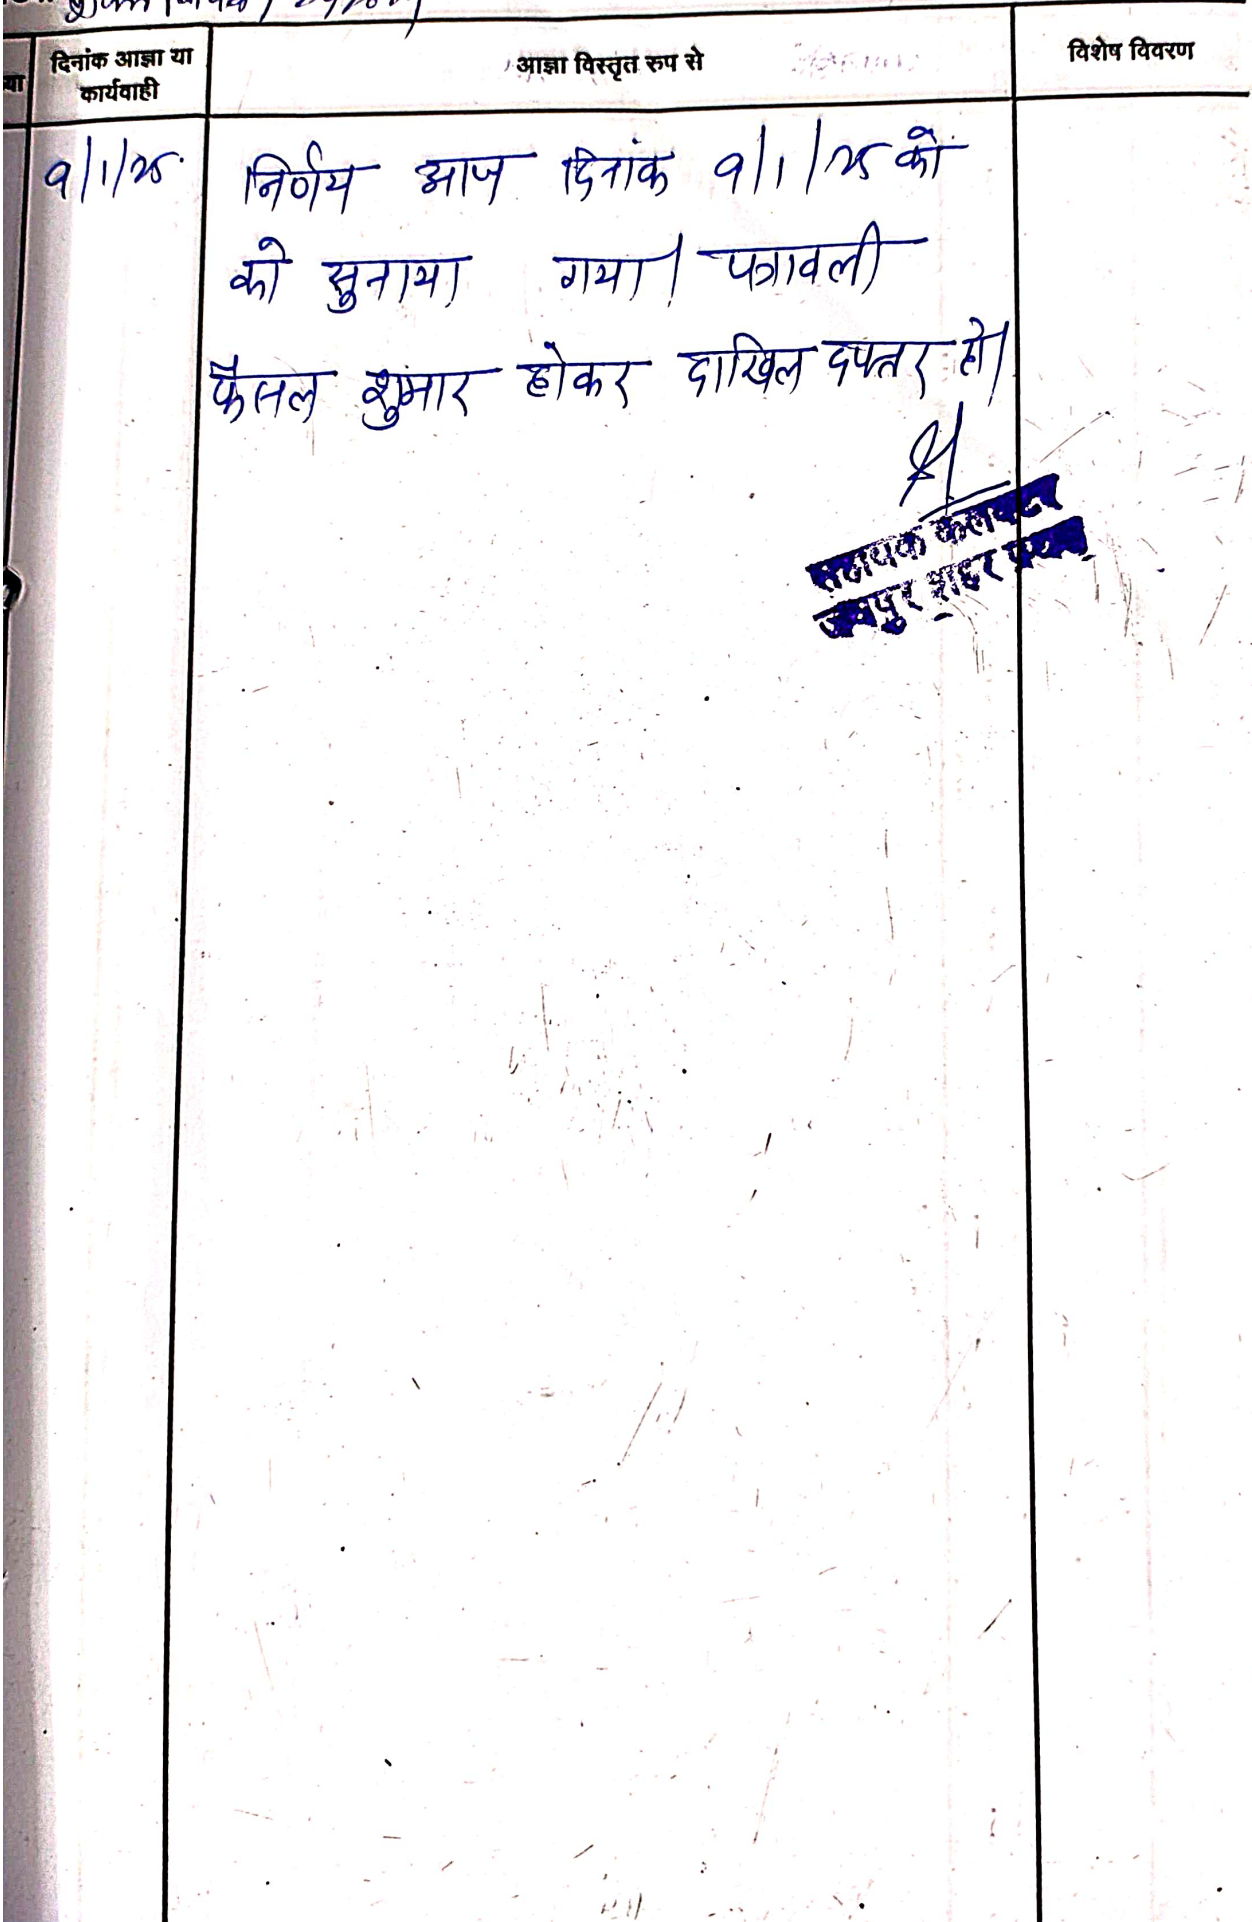 दिनांक आज्ञा या
कार्यवाही
आज्ञा विस्तृत रुप से
विशेष विवरण
9/1/25
निर्णय आज दिनांक 9/1/25 को
को सुनाया गया। पत्रावली
फैसल शुमार होकर दाखिल दफ्तर हो।
सहायक कलक्टर
जयपुर शहर